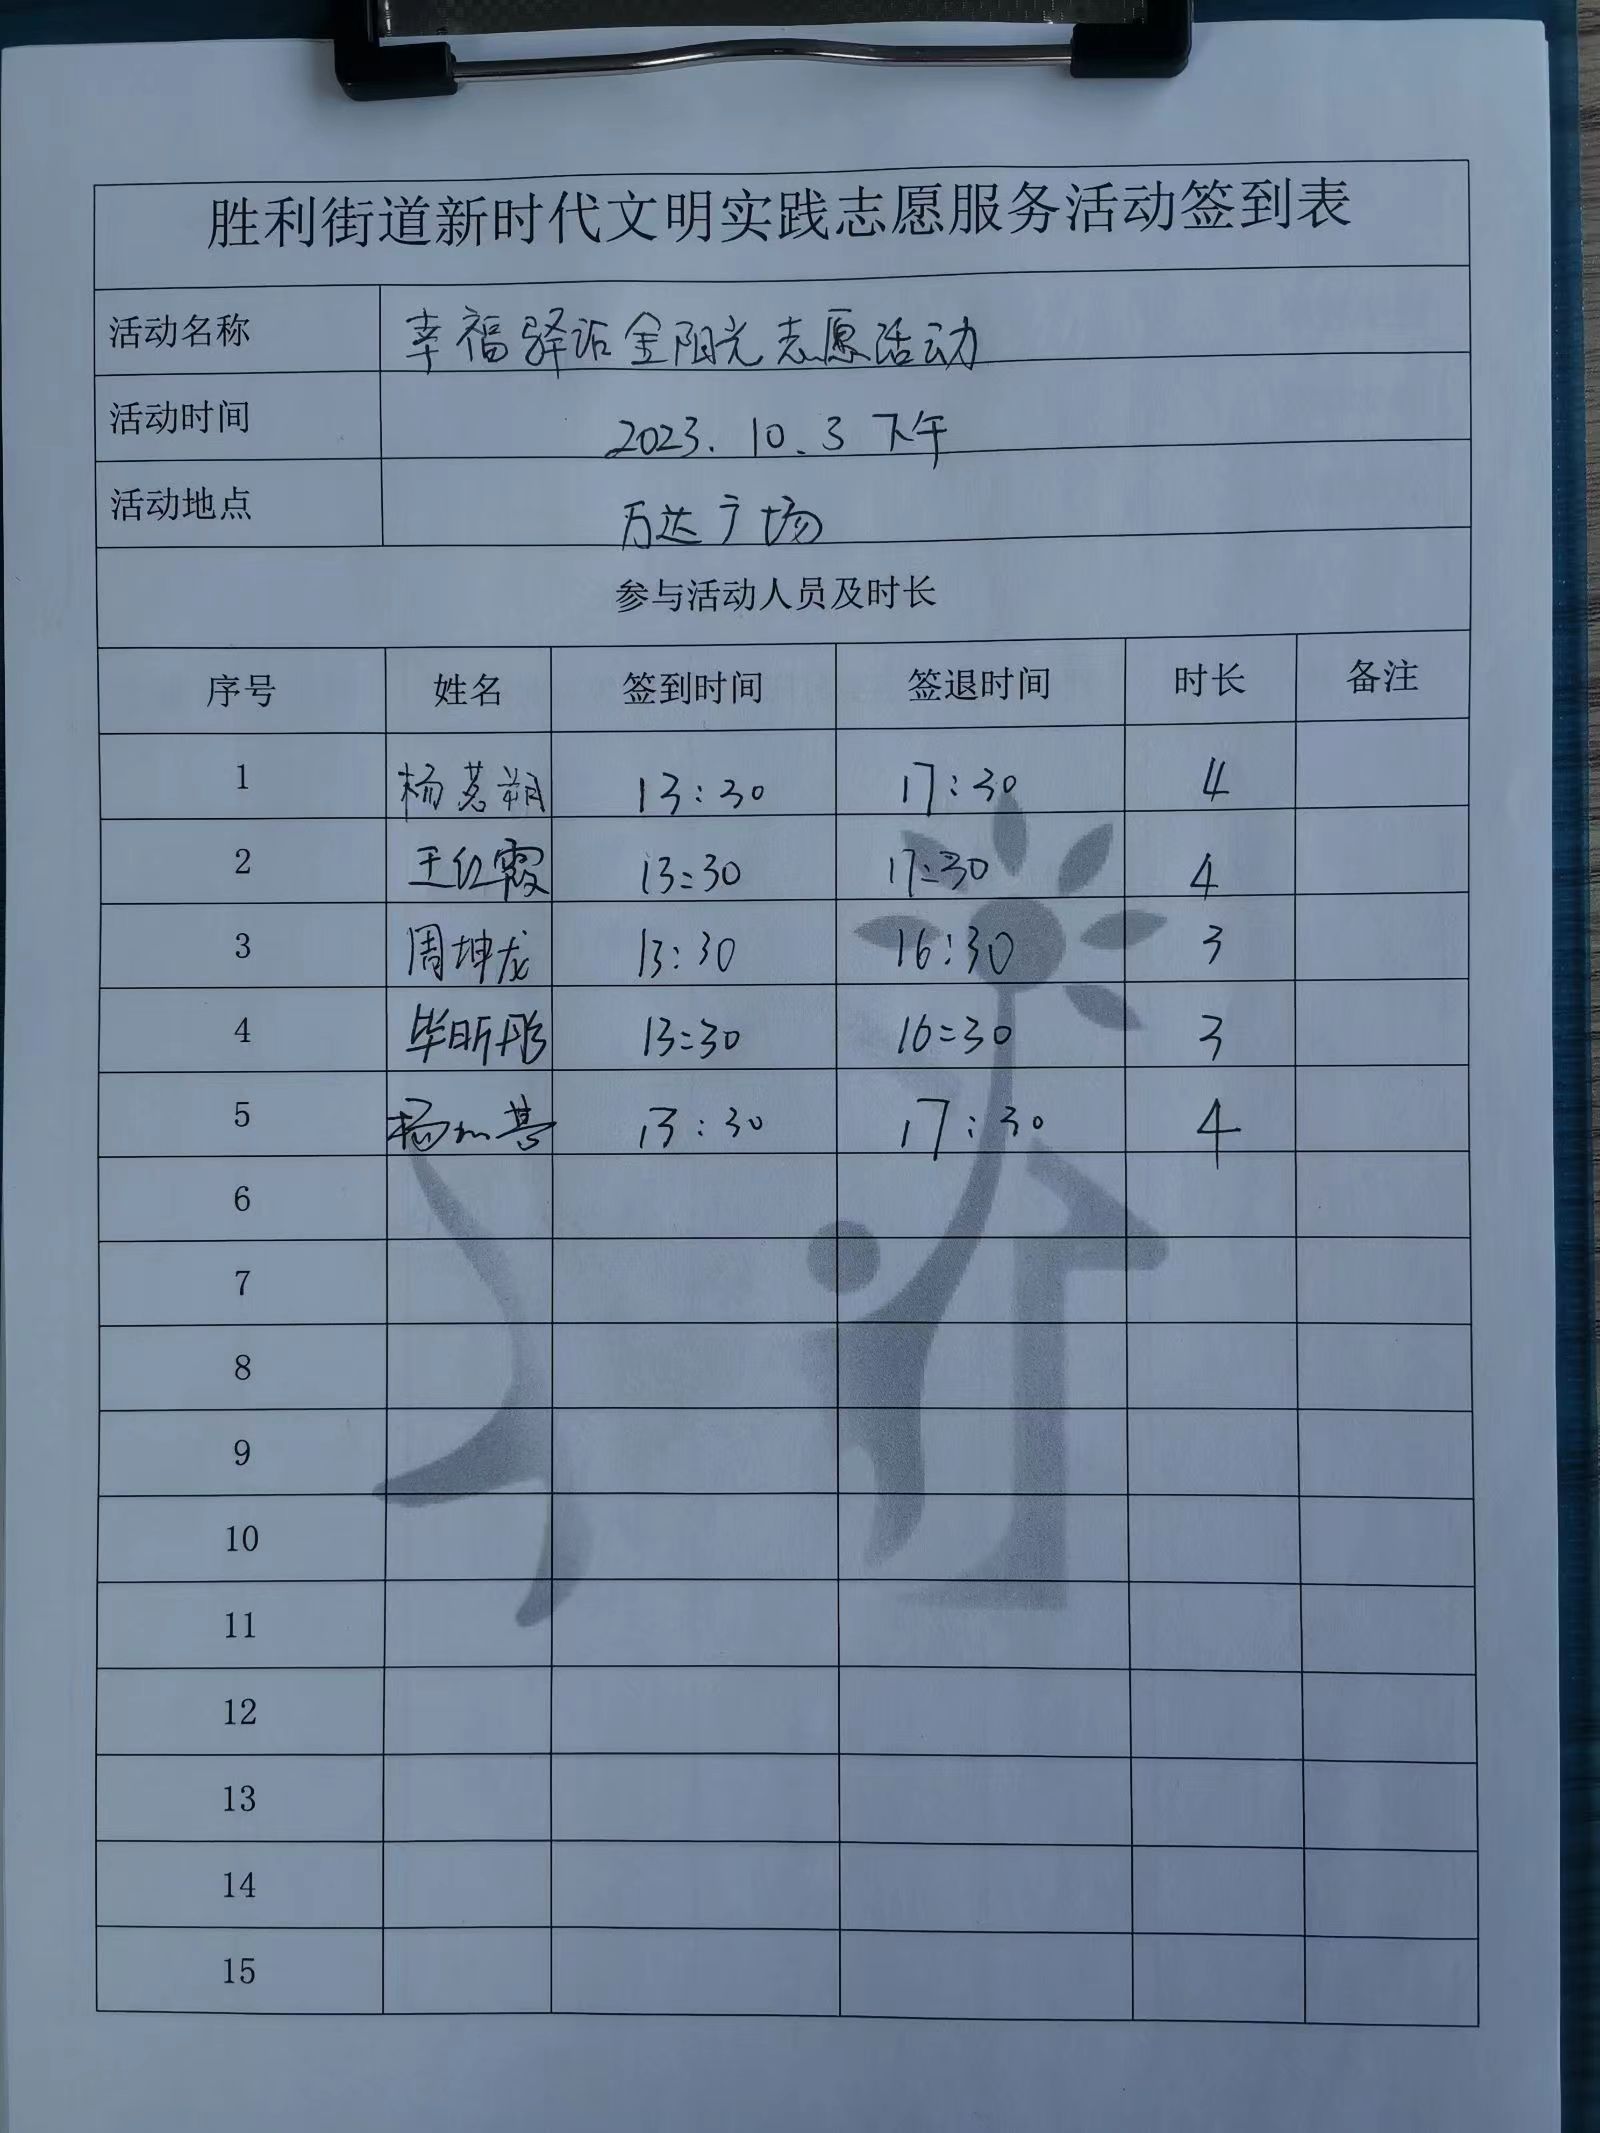 胜利街道新时代文明实践志愿服务活动签到表
活动名称 幸福驿站金阳光志愿活动
活动时间 2023.10.3 下午
活动地点 万达广场
参与活动人员及时长
序号 姓名 签到时间 签退时间 时长 备注
1 杨茗朔 13:30 17:30 4
2 王红霞 13:30 17:30 4
3 周坤龙 13:30 16:30 3
4 毕昕彤 13:30 16:30 3
5 杨 13:30 17:30 4
6
7
8
9
10
11
12
13
14
15